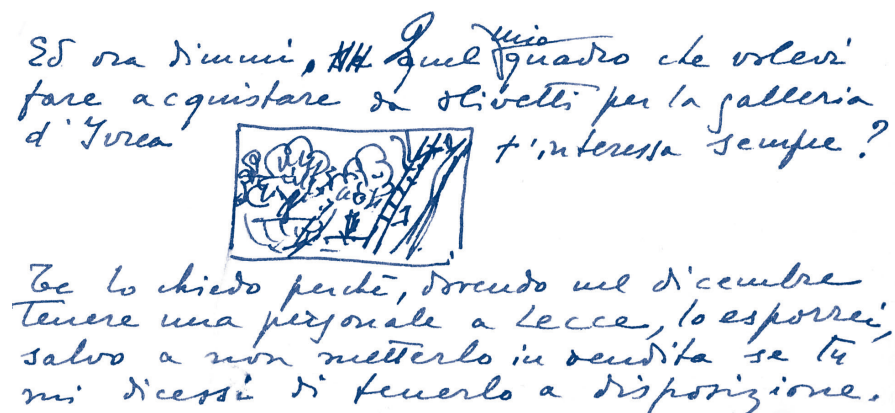 Ed ora dimmi, Quel mio quadro che volevi
fare acquistare da Olivetti per la galleria
d'Ivrea t'interessa sempre?
Te lo chiedo perché, dovendo nel dicembre
tenere una personale a Lecce, lo esporrei,
salvo a non metterlo in vendita se tu
mi dicessi di tenerlo a disposizione.